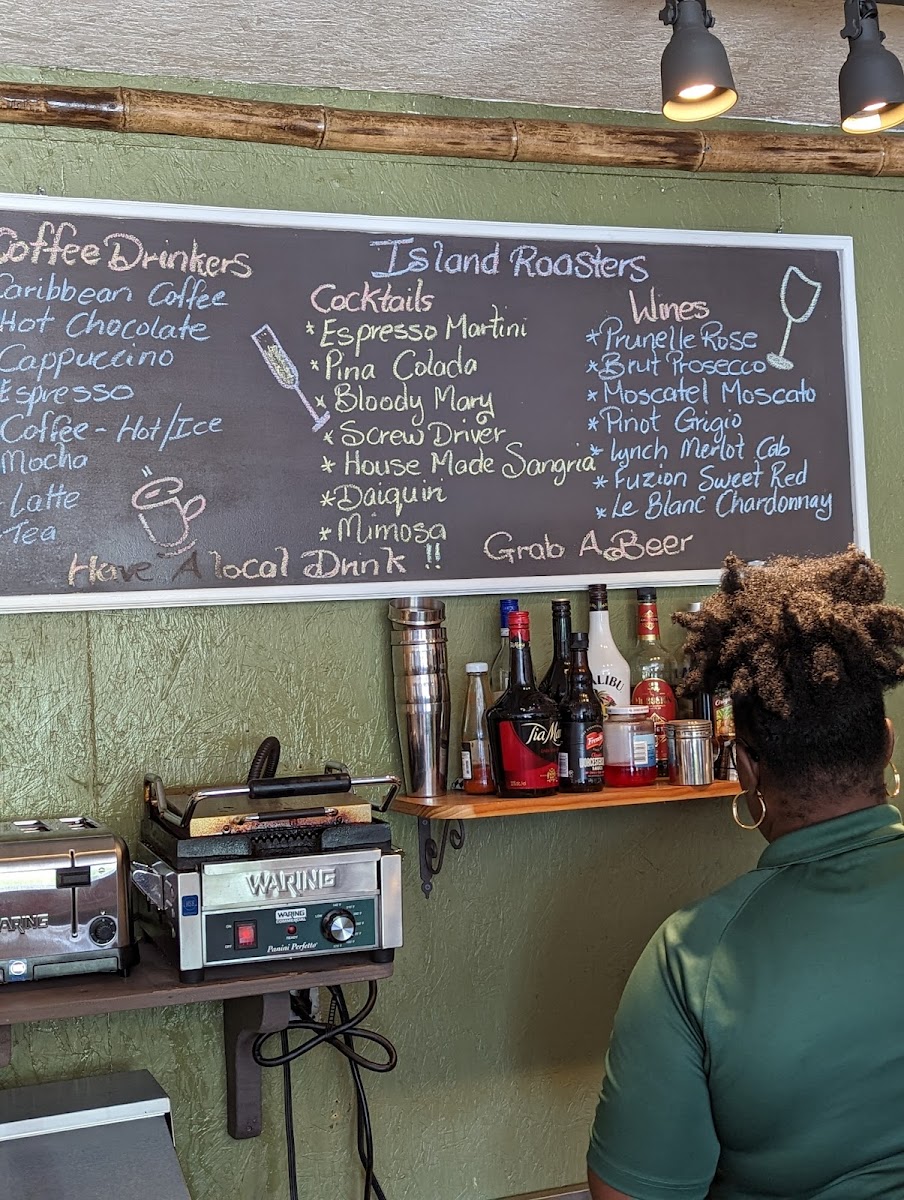 Coffee Drinkers
Caribbean Coffee
Hot Chocolate
Cappuccino
Espresso
Coffee - Hot/Ice
Mocha
- Latte
- Tea
Island Roasters
Cocktails
* Espresso Martini
* Pina Colada
* Bloody Mary
* Screw Driver
* House Made Sangria
* Daiquiri
* Mimosa
Wines
* Prunelle Rose
* Brut Prosecco
* Moscatel Moscato
* Pinot Grigio
* Lynch Merlot Cab
* Fuzion Sweet Red
* Le Blanc Chardonnay
Have A local Drink !!
Grab A Beer
ALIBU
Tia Ma
WARING
WARING
WARING
Panini Perfetto
ON
OFF
READY